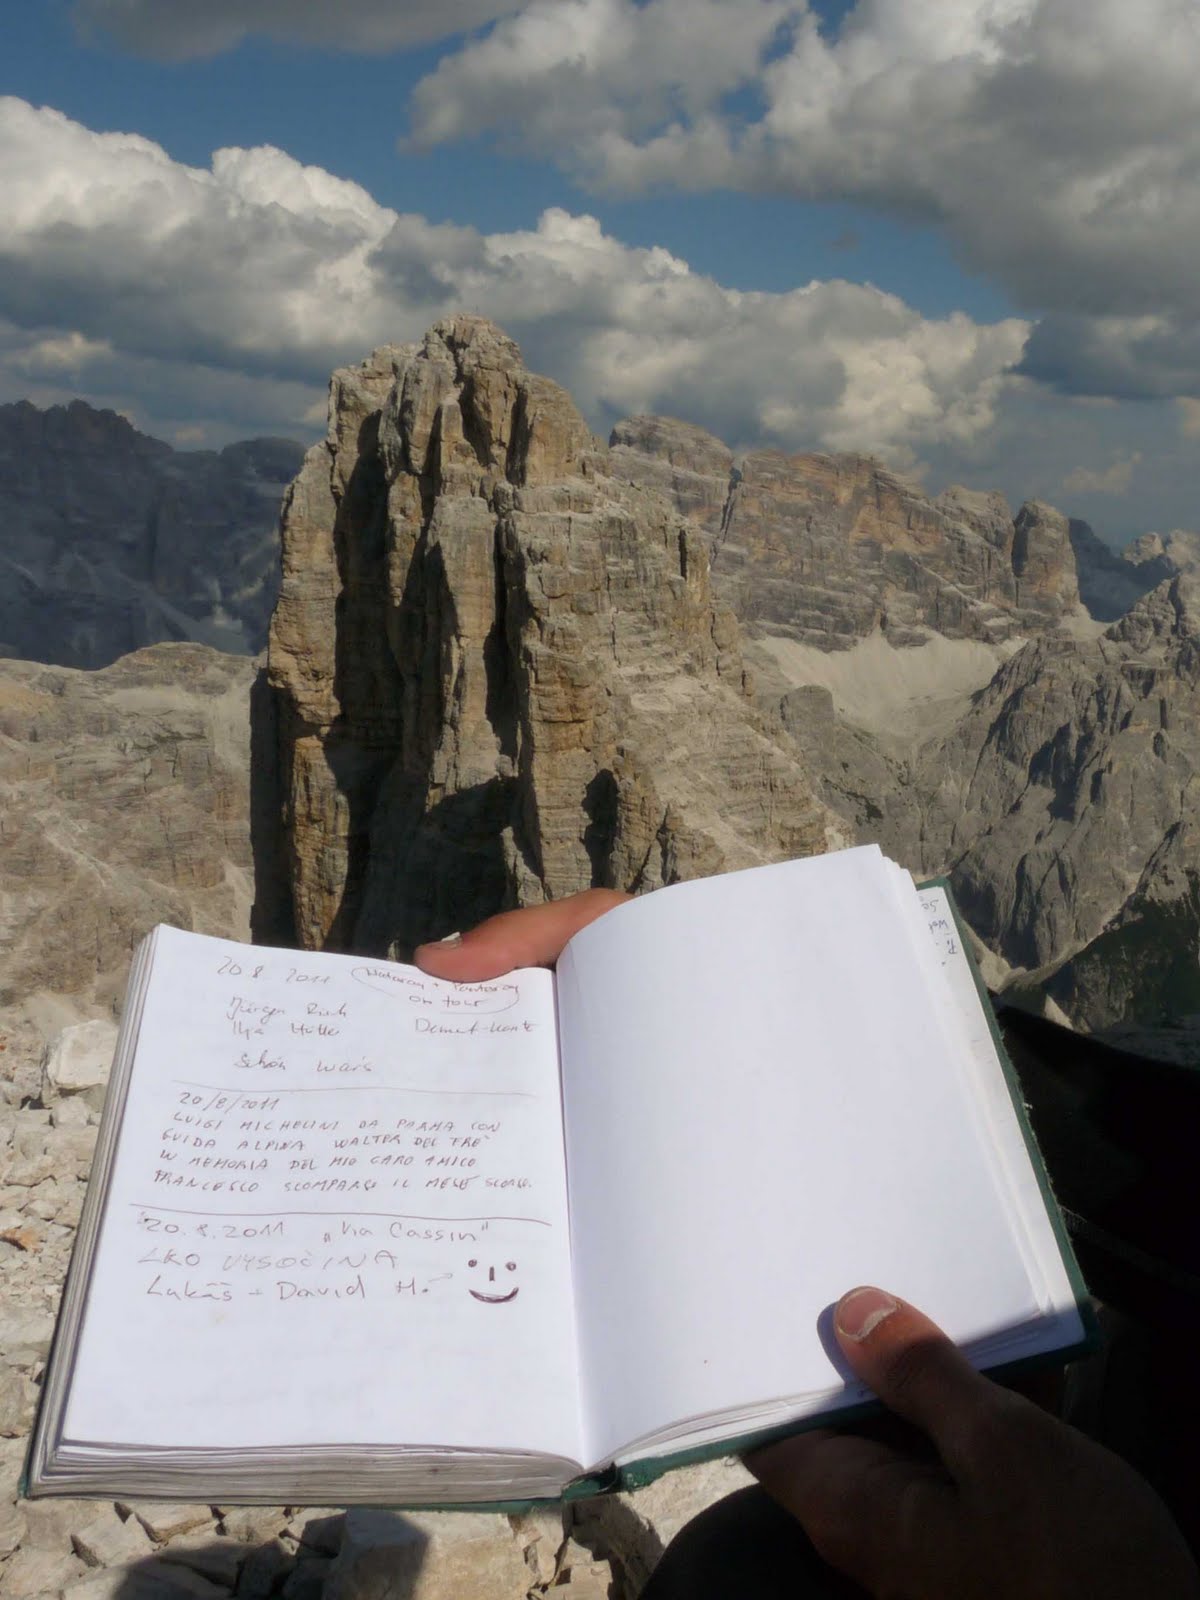 20 8 2011
on tour
Jürgen
Schön war's
20/8/2011
LUIGI MICHELINI DA PARMA CON
GUIDA ALPINA WALTER DEL TRE'
IN MEMORIA DEL MIO CARO AMICO
FRANCESCO SCOMPARSO IL MESE SCORSO.
20.8.2011 „Via Cassin"
VYSOČINA
Lukáš + David H.